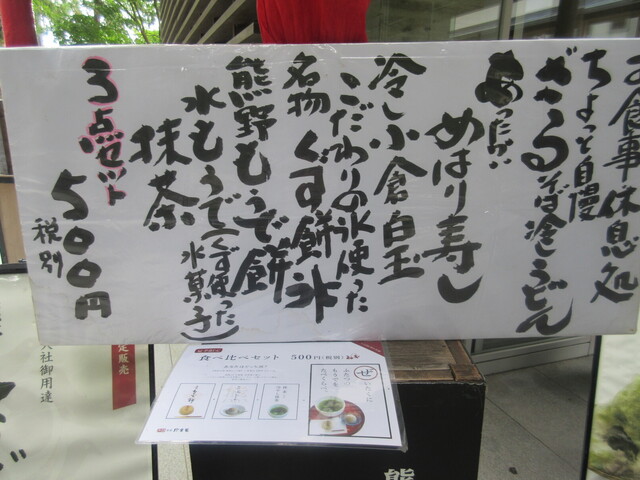 お食事休息処
ちょっと自慢
ざるそば冷しうどん
あったかい
めはり寿し
冷し小倉白玉
こだわりの氷使った
名物 くず餅氷
熊野もうで餅
水もうで(くず使った水菓子)
抹茶
3点セット
500円
税別
食べ比べセット 500円(税別)
ぜ
いたくに
社御用達
定販売
熊